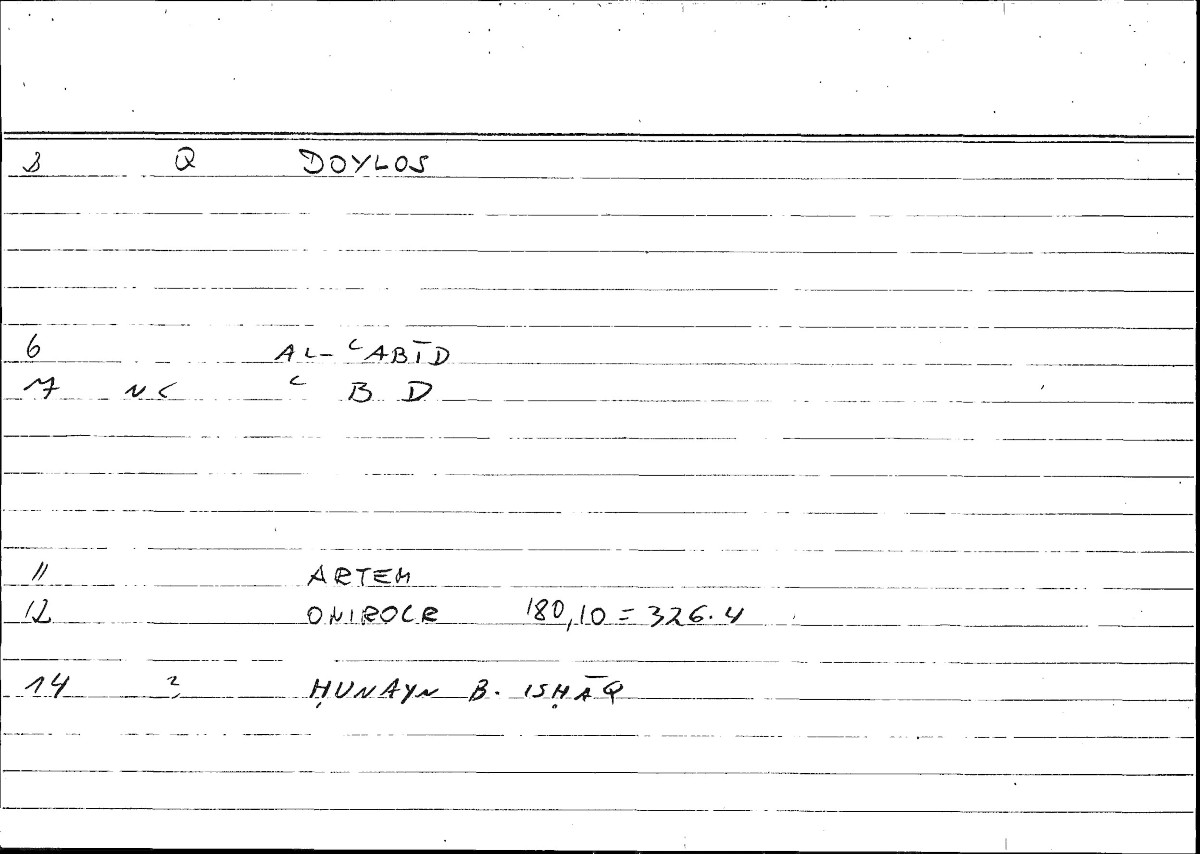 3 Q DOYLOS
6 AL-ʿABĪD
7 NC ʿ B D
11 ARTEM
12 ONIROCR 180,10 = 326.4
14 2 ḤUNAYN B. ISḤĀQ